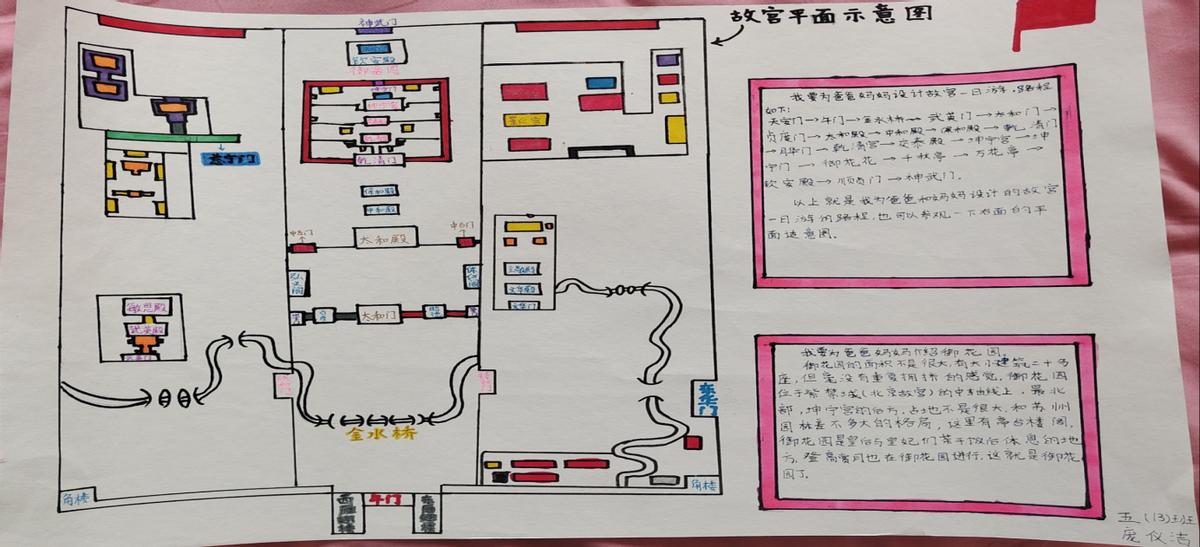 故宫平面示意图
神武门
钦安殿
御花园
坤宁门
乾清门
保和殿
中和殿
太和殿
中右门
中左门
弘义阁
体仁阁
太和门
敬思殿
武英殿
慈宁门
文华殿
文华门
东华门
金水桥
角楼
角楼
午门
我要为爸爸妈妈设计故宫一日游,路程
如下:
天安门→午门→金水桥→武英门→太和门→
贞度门→太和殿→中和殿→保和殿→乾清门
→月华门→乾清宫→交泰殿→坤宁宫→坤
宁门→御花花→千秋亭→万花亭→
钦安殿→顺贞门→神武门。
以上就是我为爸爸和妈妈设计的故宫
一日游的路程,也可以参观一下右面的平
面适意图。
我要为爸爸妈妈介绍御花园。
御花园的面积不是很大,有大小建筑二十多
座,但毫没有重复拥挤的感觉,御花园
位于紫禁城(北京故宫)的中轴线上,最北
部,坤宁宫的后方,占地不是很大,和苏州
园林差不多大的格局,这里有亭台楼阁,
御花园是皇后与皇妃们茶于饭后休息的地
方,登高赏月也在御花园进行,这就是御花
园了。
五(13)班
庞仪洁